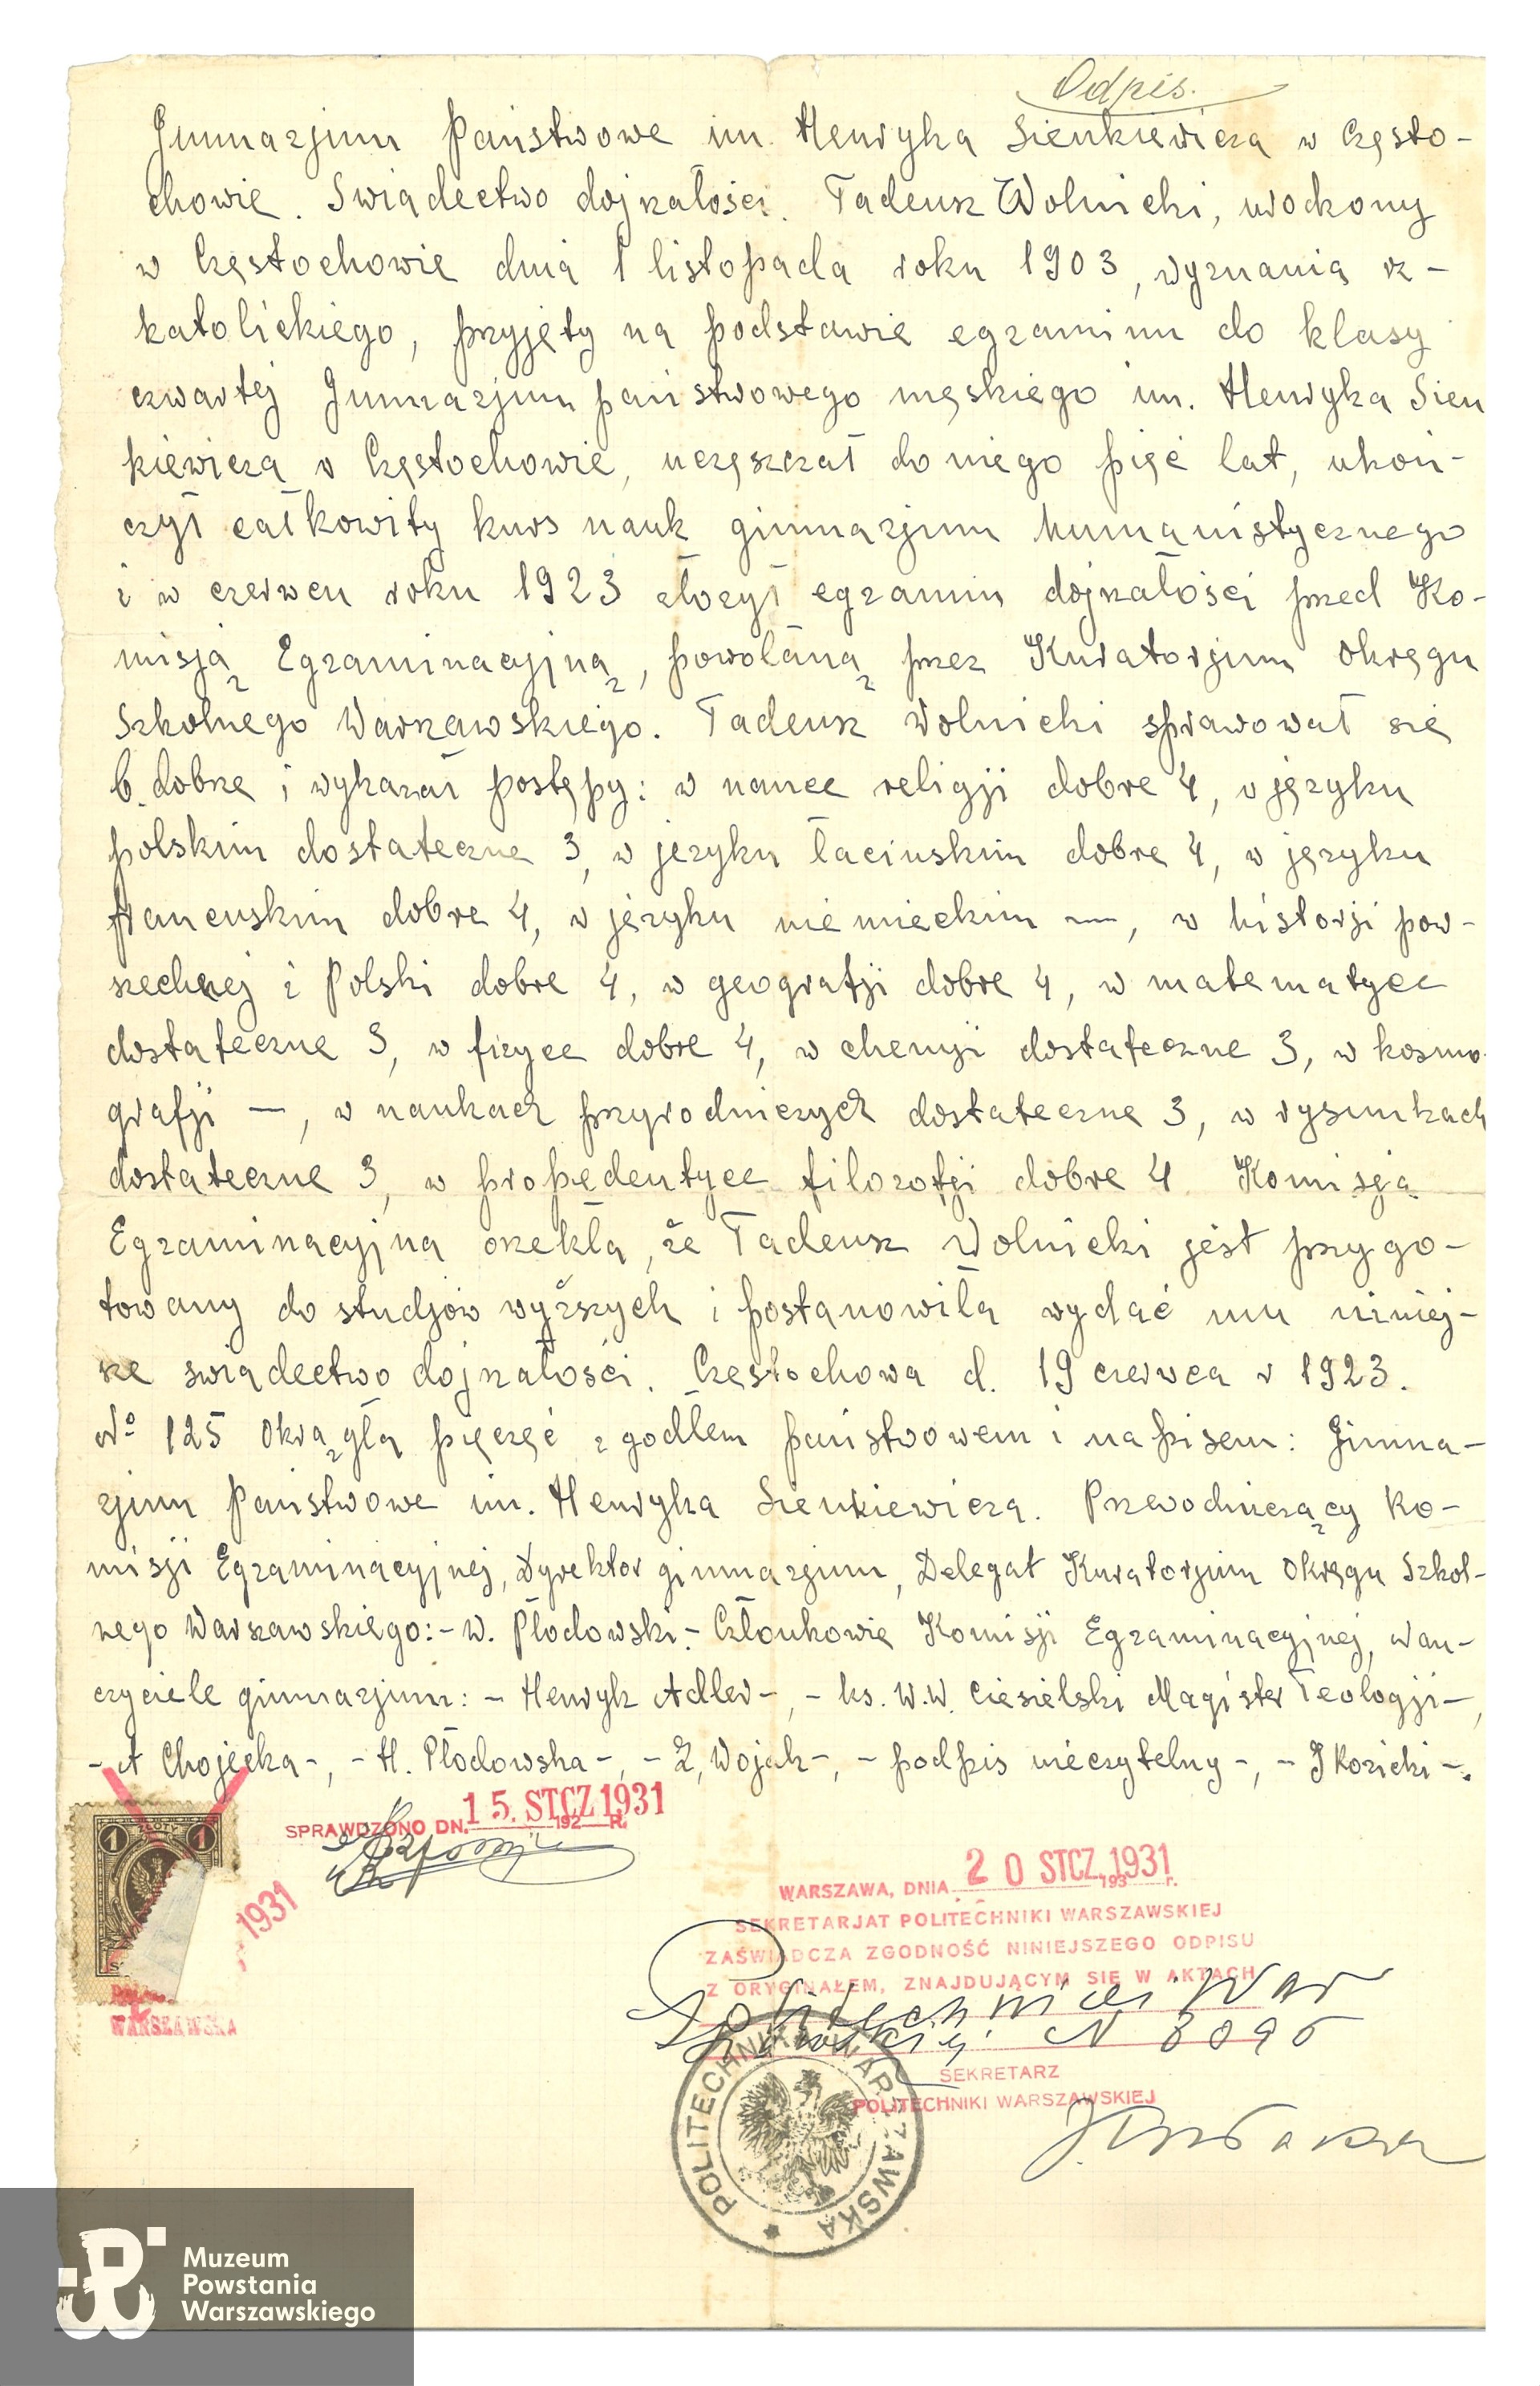 Odpis.
Gimnazjum Państwowe im. Henryka Sienkiewicza w Często-
chowie. Świadectwo dojrzałości. Tadeusz Wolnicki, urodzony
w Częstochowie dnia 1 listopada roku 1903, wyznania rz-
katolickiego, przyjęty na podstawie egzaminu do klasy
czwartej Gimnazjum państwowego męskiego im. Henryka Sien
kiewicza w Częstochowie, uczęszczał do niego pięć lat, ukoń-
czył całkowity kurs nauk gimnazjum humanistycznego
i w czerwcu roku 1923 złożył egzamin dojrzałości przed Ko-
misją Egzaminacyjną, powołaną przez Kuratorjum Okręgu
Szkolnego Warszawskiego. Tadeusz Wolnicki sprawował się
b. dobrze i wykazał postępy: w nauce religji dobre 4, w języku
polskim dostateczne 3, w języku łacinskim dobre 4, w języku
francuskim dobre 4, w języku niemieckim —, w historji pow-
szechnej i Polski dobre 4, w geografji dobre 4, w matematyce
dostateczne 3, w fizyce dobre 4, w chemji dostateczne 3, w kosmo-
grafji —, w naukach przyrodniczych dostateczne 3, w rysunkach
dostateczne 3, w propedentyce filozofji dobre 4 Komisja
Egzaminacyjna orzekła, że Tadeusz Wolnicki jest przygo-
towany do studjów wyższych i postanowiła wydać mu niniej-
sze świadectwo dojrzałości. Częstochowa d. 19 czerwca r 1923.
No 125 Okrągła pięczęć z godłem państwowem i napisem: Gimna-
zjum Państwowe im. Henryka Sienkiewicza. Przewodniczący Ko-
misji Egzaminacyjnej, Dyrektor gimnazjum, Delegat Kuratorjum Okręgu Szkol-
nego Warszawskiego:- W. Płodowski.- Członkowie Komisji Egzaminacyjnej, nau-
czyciele gimnazjum: - Henryk Adler-, - ks. W.W. Ciesielski Magister Teologji-,
- A Chojecka-, - H. Płodowska-, - Z, Wojak-, - podpis nieczytelny-, - J Kozicki-.
SPRAWDZONO DN. 15. STCZ 1931 192 R.
1 ZŁOTY 1
1931
WARSZAWSKA
WARSZAWA, DNIA 20 STCZ. 1931 193 r.
SEKRETARJAT POLITECHNIKI WARSZAWSKIEJ
ZAŚWIADCZA ZGODNOŚĆ NINIEJSZEGO ODPISU
Z ORYGINAŁEM, ZNAJDUJĄCYM SIĘ W AKTACH
Politechniki War
szawskiej N 8096
SEKRETARZ
POLITECHNIKI WARSZAWSKIEJ
POLITECHNIKA WARSZAWSKA
Muzeum
Powstania
Warszawskiego